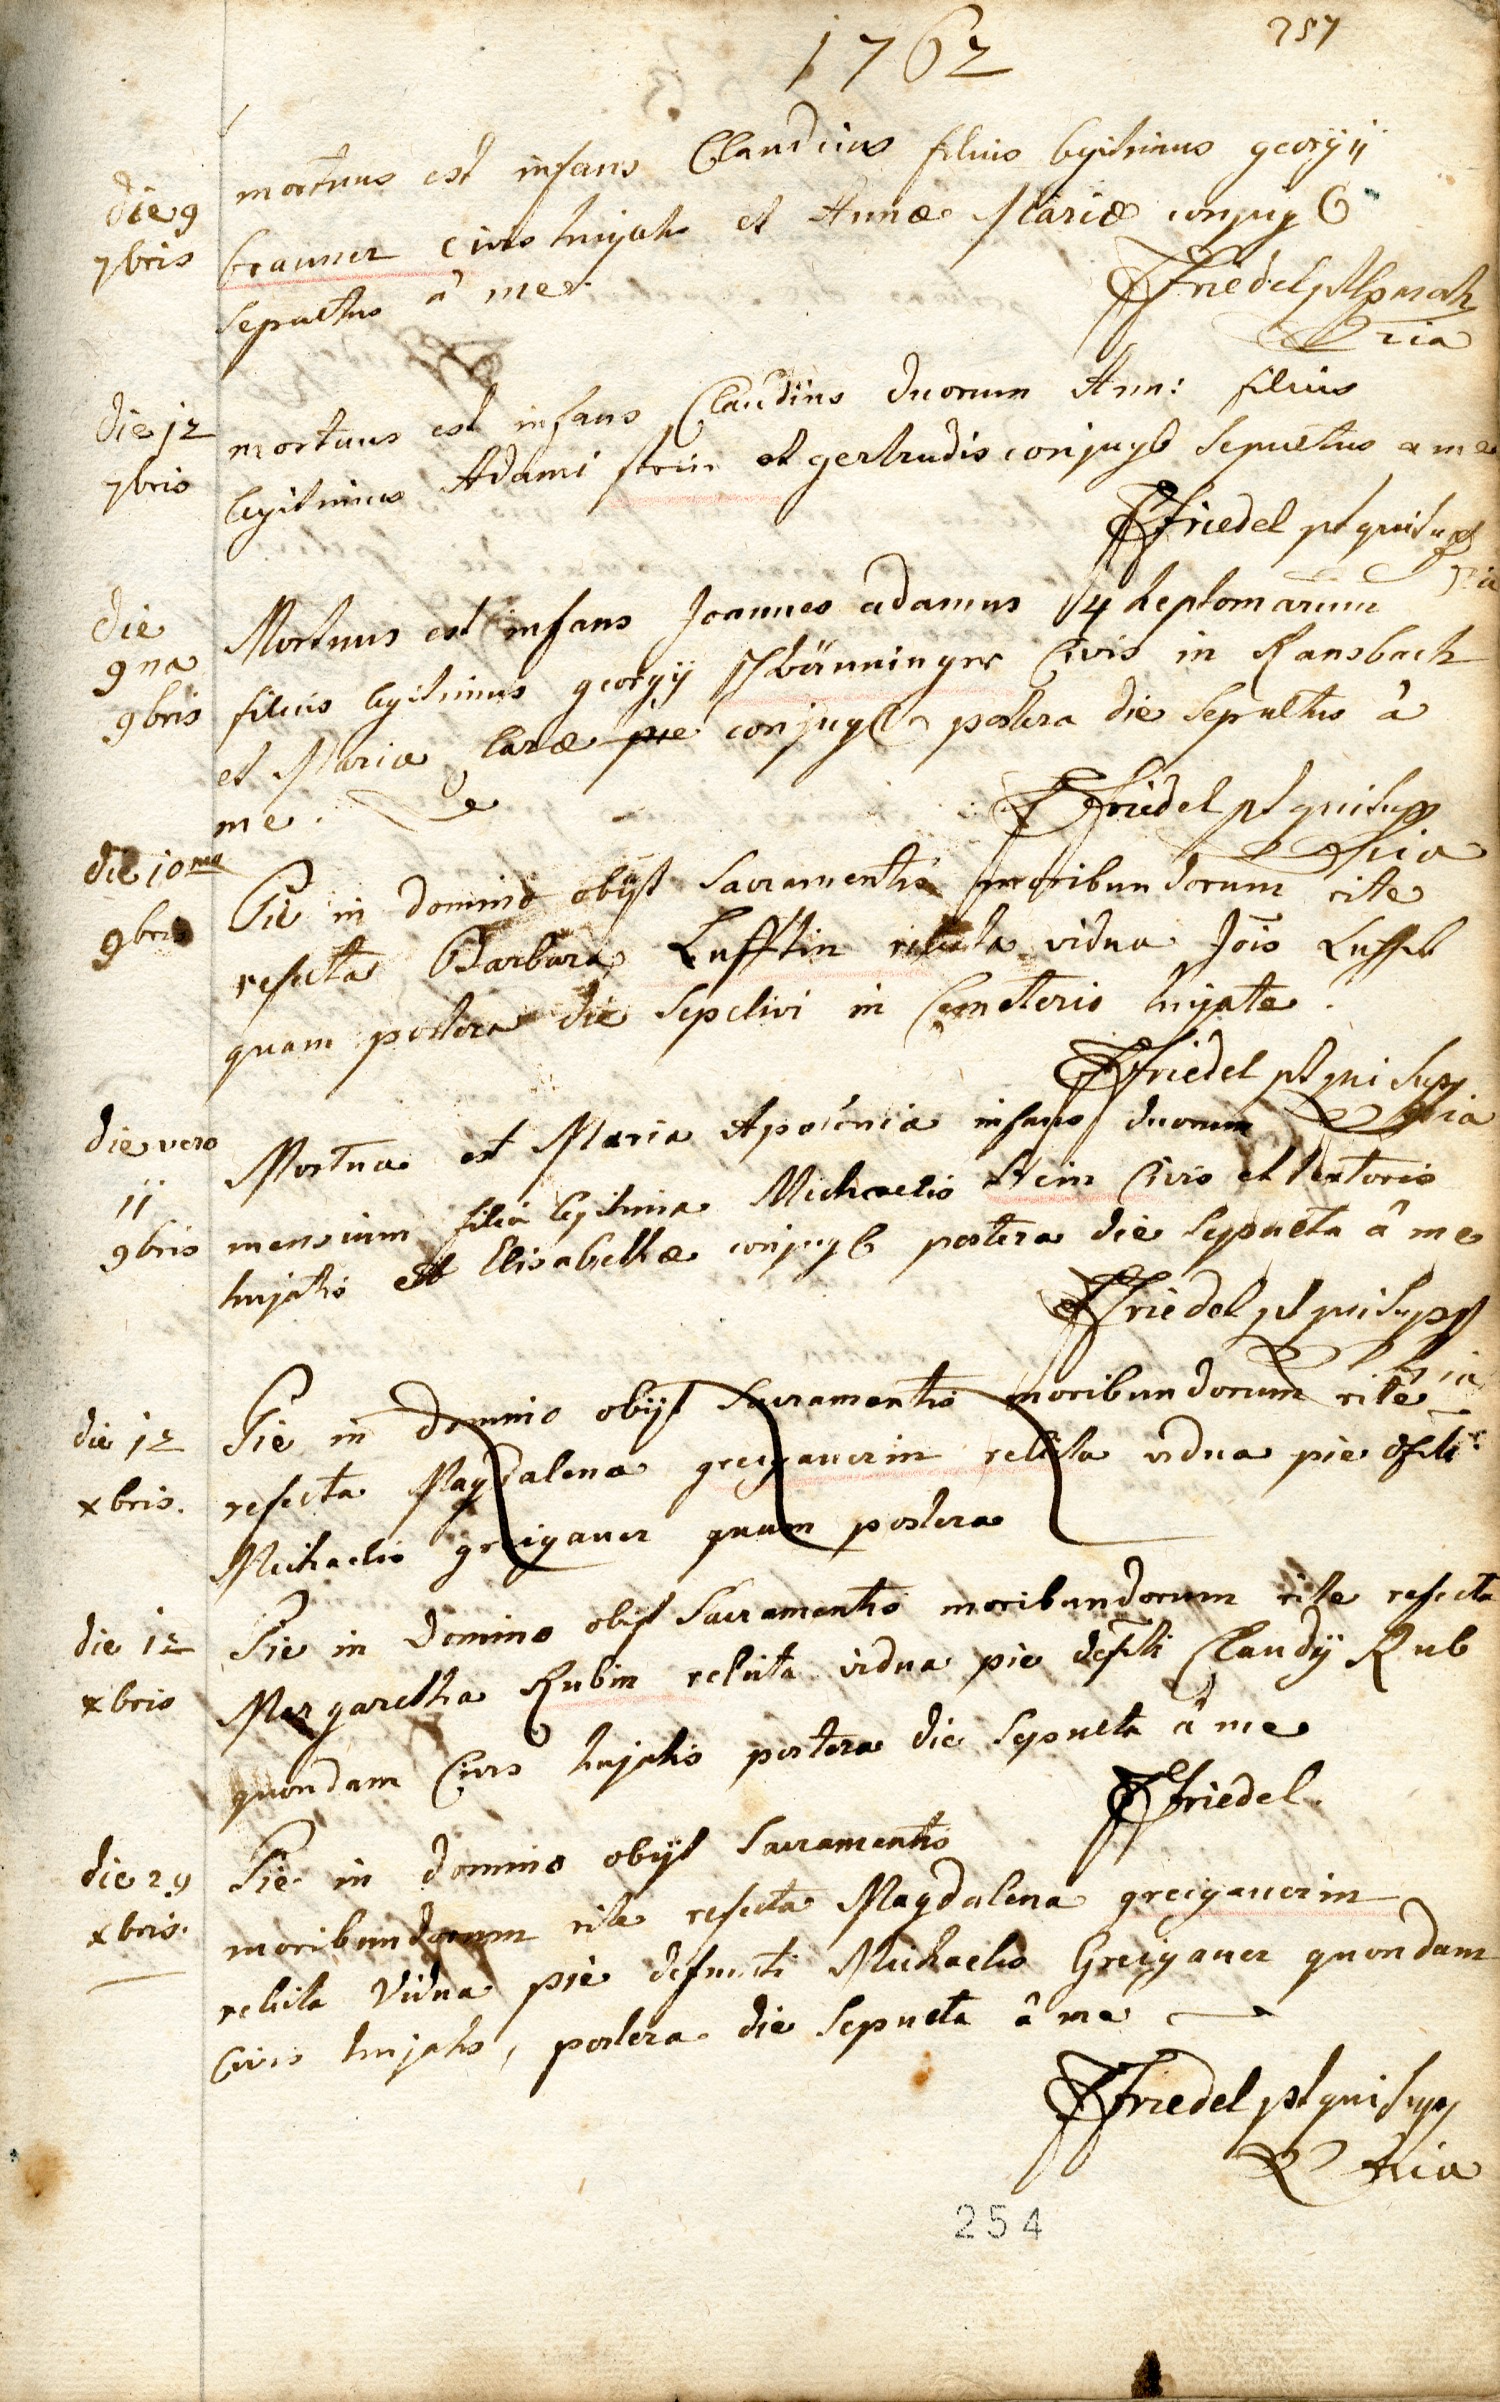 1762
257
die 9
7bris
mortuus est infans Claudius filius legitimus georgij
brauner civis hujatis et Annæ Mariæ conjug
sepultus â me.
Friedel
ria
die 12
7bris
mortuus est infans Claudius duorum Ann: filius
legitimus Adami et gertrudis conjug sepultus a me
Friedel pt qui supr
ria
die
9na
9bris
Mortuus est infans Joannes adamus 14 heptomarum
filius legitimus georgij civis in Ransbach
et Mariæ Claræ pie conjug postera die sepultus â
me.
Friedel pt qui supr
ria
die 10ma
9bris
Pie in domino obijt Sacramentis moribundorum rite
refecta Barbara Lufftin relicta vidua Jois Lufft
quam postera die sepelivi in Cemeterio hujate.
Friedel pt qui supr
ria
die vero
11
9bris
Mortua est Maria Apolonia infans duorum
mensium filia legitima Michaelis Stein civis et textoris
hujatis et Elisabethæ conjug postera die sepulta â me
Friedel pt qui supr
ria
die 12
xbris.
Pie in domino obijt Sacramentis moribundorum rite
refecta Magdalena greigauerin relicta vidua pie dfti
Michaelis greigauer quam postera
die 12
xbris
Pie in domino obijt Sacramentis moribundorum rite refecta
Margaretha Rubin relicta vidua pie defti Claudij Rub
quondam Civis hujatis postera die sepulta â me
Friedel.
die 29
xbris.
Pie in domino obijt Sacramentis
moribundorum rite refecta Magdalena greigauerin
relicta Vidua pie defuncti Michaelis Greigauer quondam
Civis hujatis, postera die sepulta â me
Friedel pt qui supr
ria
254